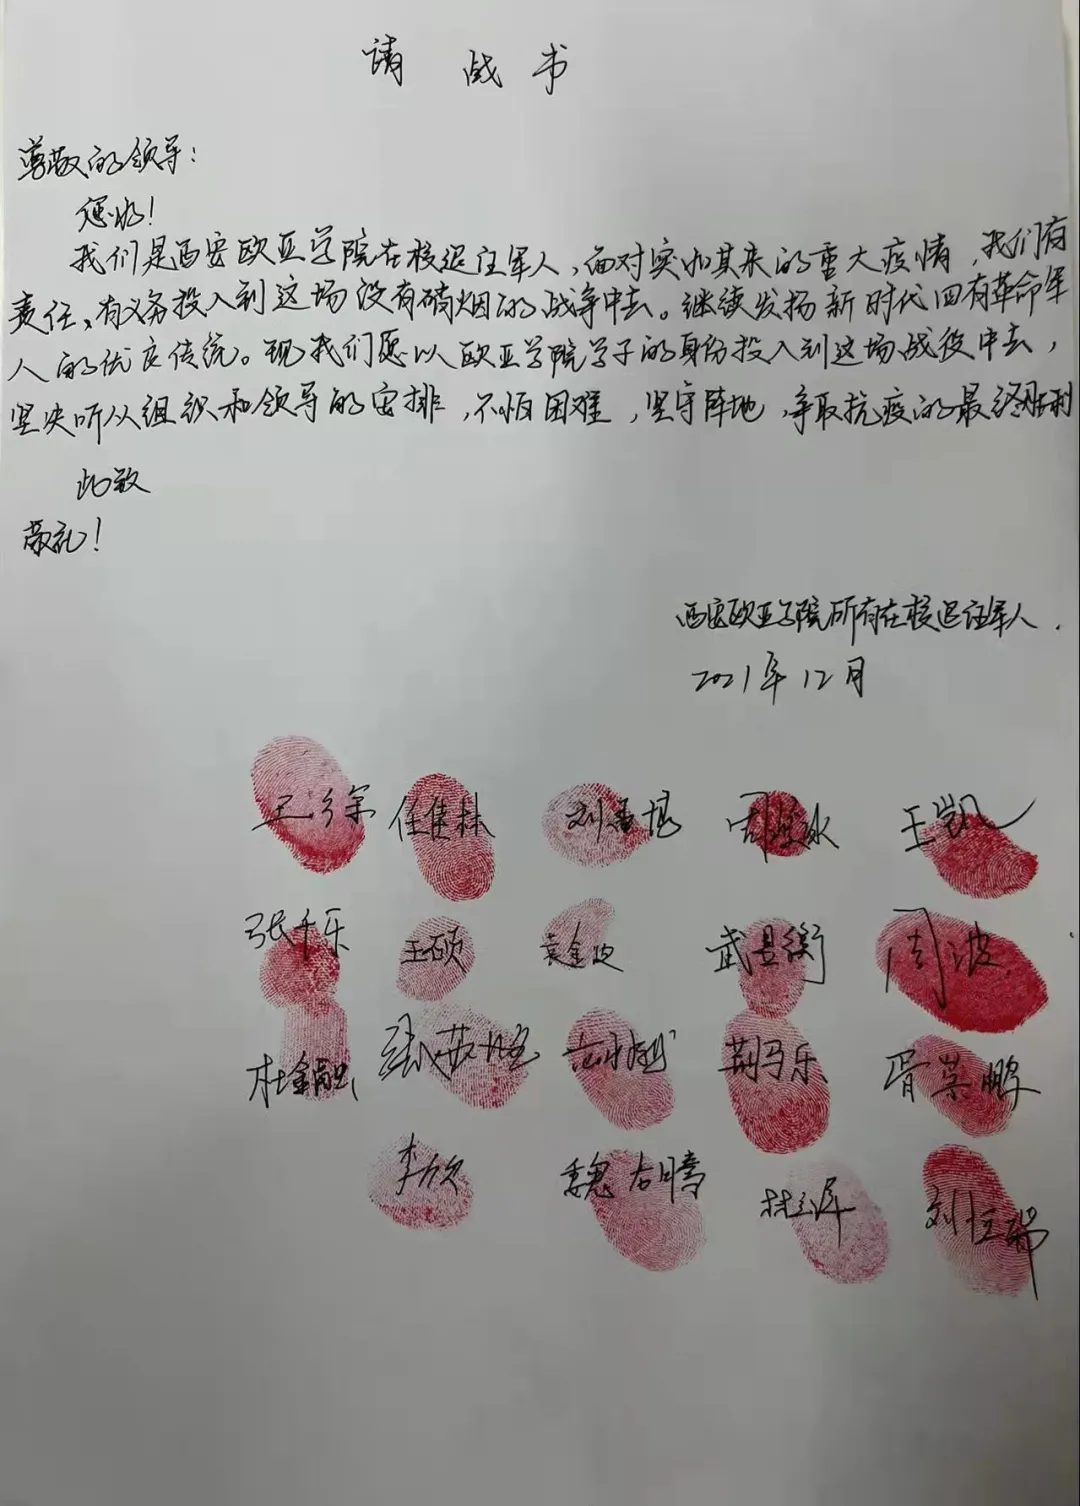 请战书
尊敬的领导：
您好！
我们是西安欧亚学院在校退伍军人，面对突如其来的重大疫情，我们有
责任、有义务投入到这场没有硝烟的战争中去。继续发扬新时代四有革命军
人的优良传统。现我们愿以欧亚学院学子的身份投入到这场战役中去，
坚决听从组织和领导的安排，不怕困难，坚守阵地，争取抗疫的最终胜利
此致
敬礼！
西安欧亚学院所有在校退伍军人．
2021年12月
王 任佳林 刘 周 王凯
张千乐 王硕 袁金 武昱衡 周波
杜鑫 张 荆马乐 胥崇鹏
李欣 魏 林 刘恒瑞